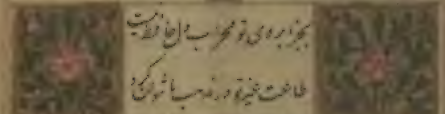 بجز ابروی تو محراب دل حافظ نیست
طاعت غیر تو در مذهب ما نتوان کرد